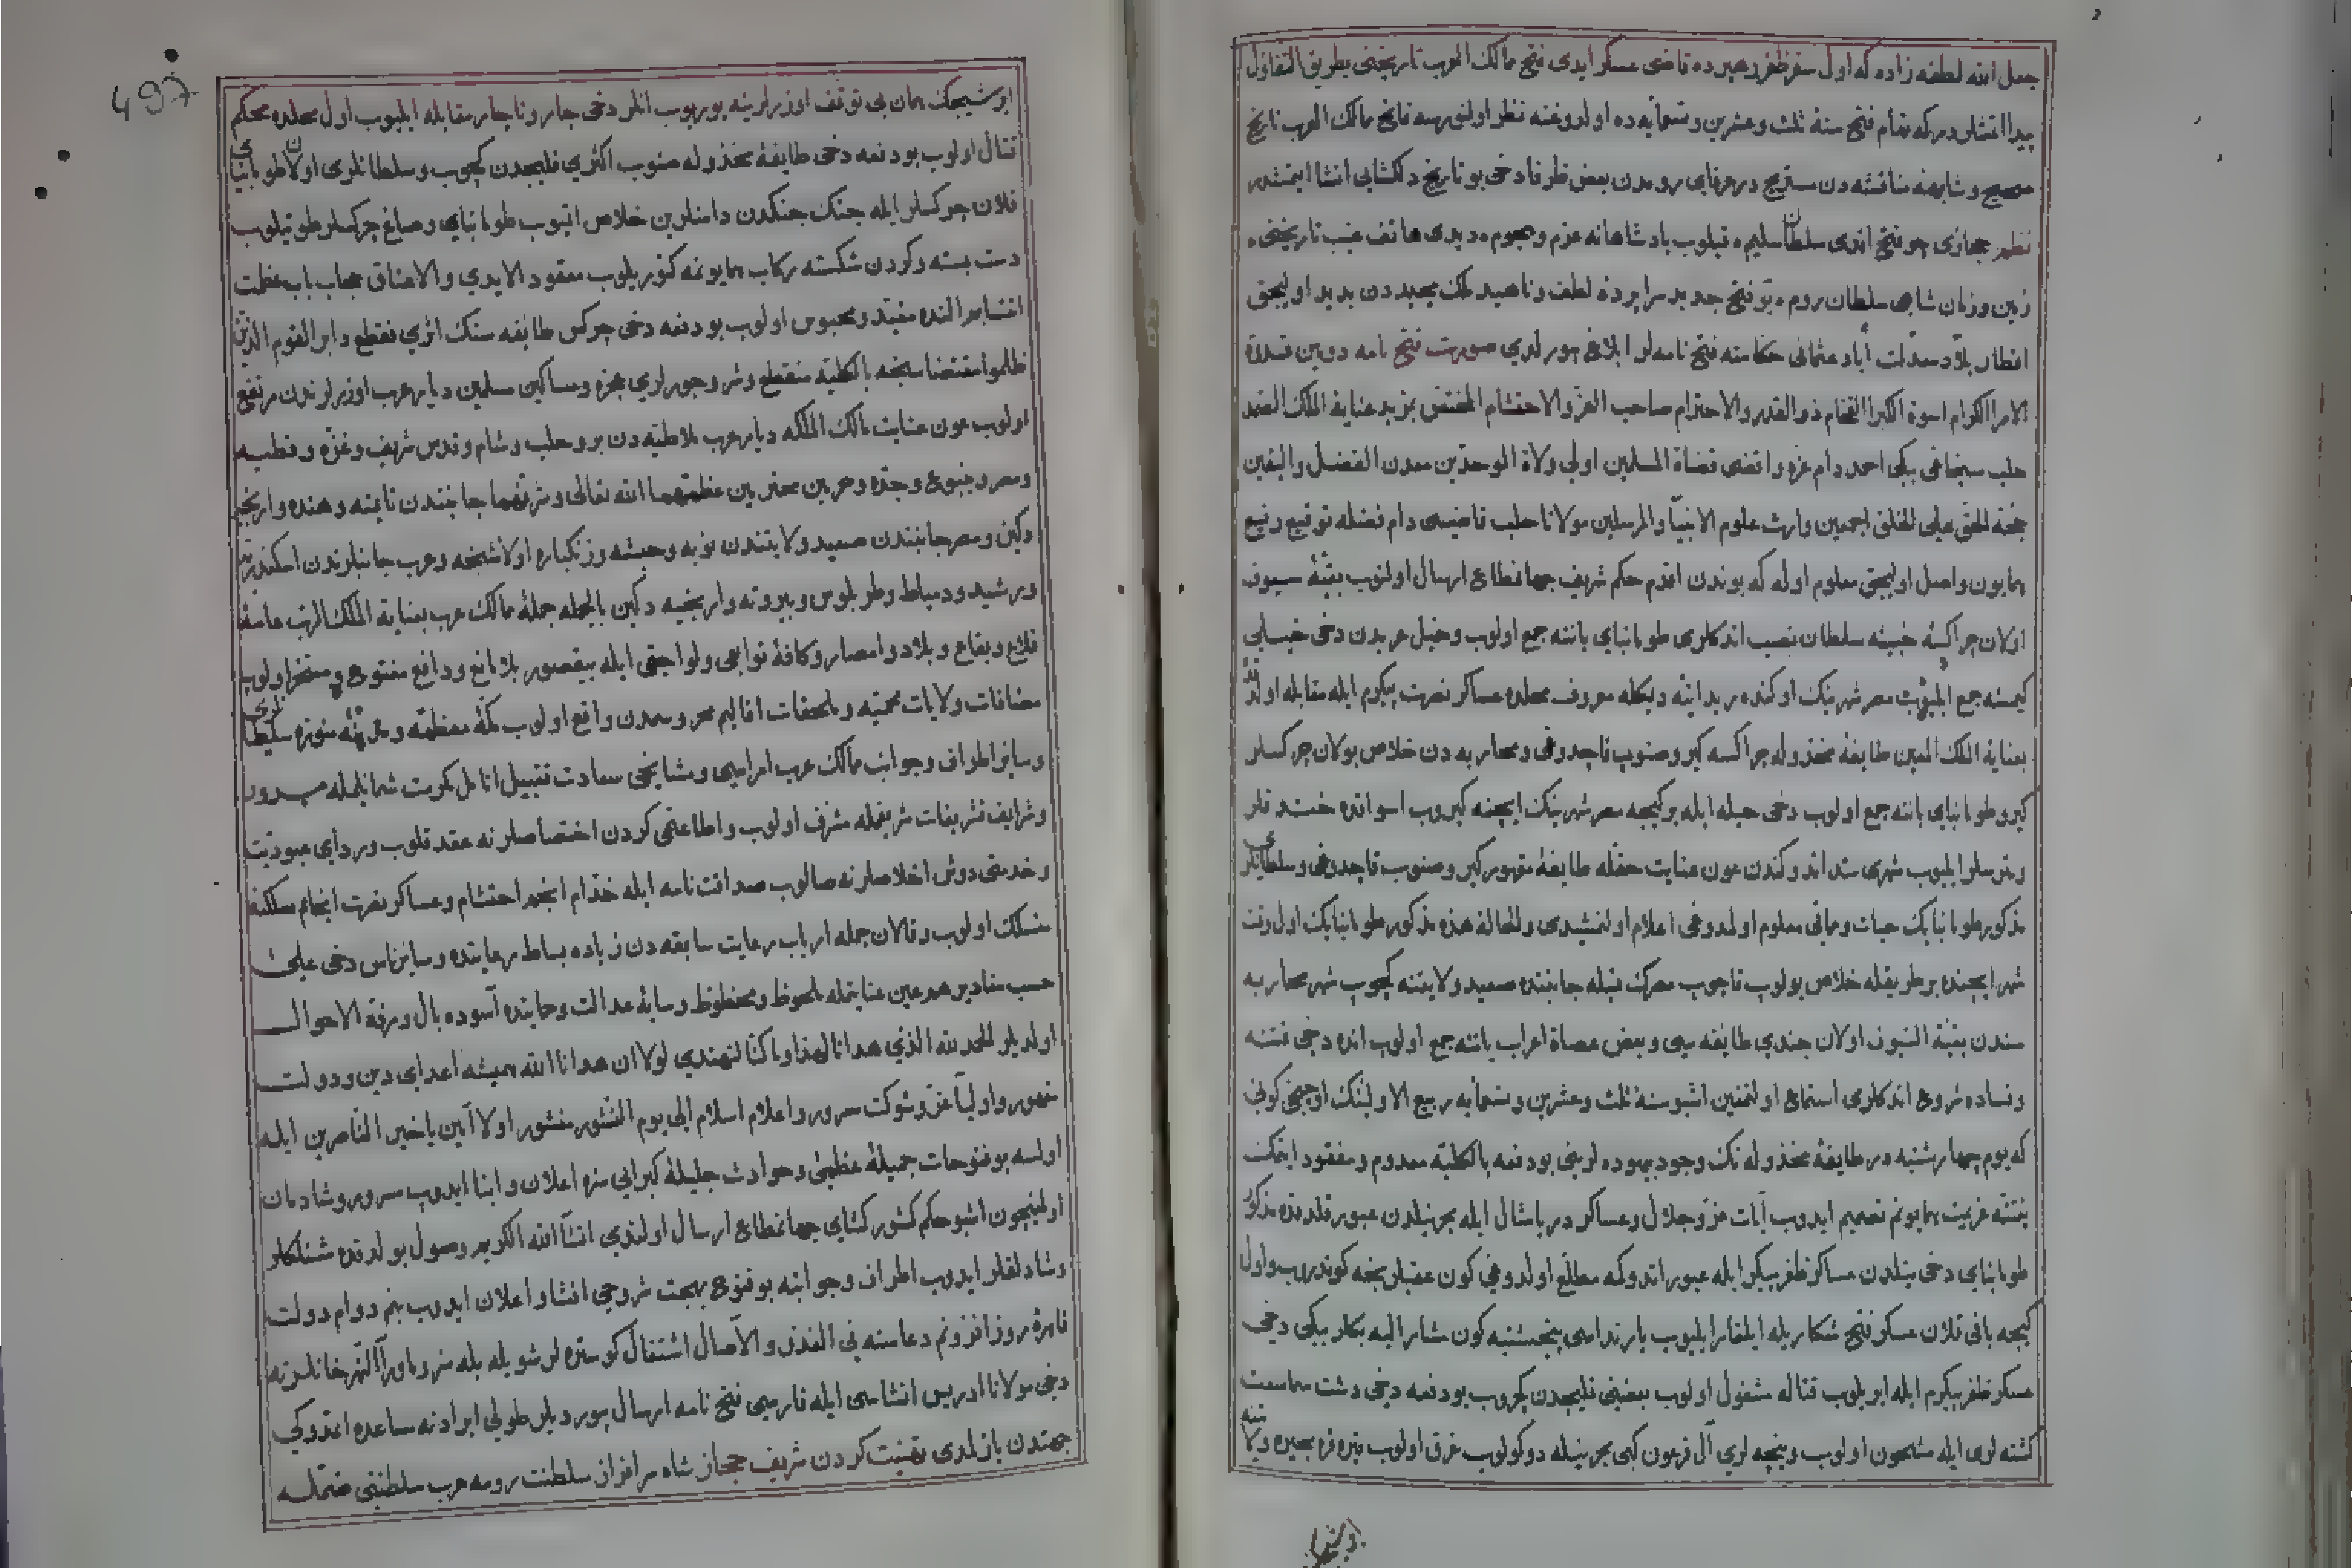 جعل الله لطفه زاده که اول سفر ظفر رهبرده قاضی عسکر ایدی فتح ممالک العرب تاریخنی بطریق التفاؤل
پیدا اتمشلردر که تمام فتح سنهٔ ثلث وعشرین وتسعمائه ده اولدوغنه نظر اولنورسه فاتح ممالک العرب تاریخ
صحیح وشایبهٔ مناقشه دن ستریح در عرفای رومدن بعض ظرفا دخی بو تاریخ دلکشایی انشا ایتمشدر
نظم حجازی چو فتح اتدی سلطان سلیم قیلوب پادشاهانه عزم وهجوم دیدی هاتف غیب تاریخنی
زمین وزمان شاهی سلطان روم بو فتح جدید سراپردهٔ لطف وتاهید ملک مجیددن پدید اولیجق
اقطار بلاد معدلت آباد عثمانی حکامنه فتح نامه لر ابلاغ بیورلدی صورت فتح نامه دوبین قدوة
الامرا الکرام اسوة الکبرا الفخام ذو القدر والاحترام صاحب العز والاحتشام المختص بمزید عنایة الملک الصمد
حلب سنجاغی بکی احمد دام عزه واقضی قضاة المسلمین اولی ولاة الموحدین معدن الفضل والیقین
حجة الحق علی الخلق اجمعین وارث علوم الانبیا والمرسلین مولانا حلب قاضیسی دام فضله توقیع رفیع
همایون واصل اولیجق معلوم اوله که بوندن اقدم حکم شریف جهانمطاع ارسال اولنوب بقیهٔ سیوف
اولان چراکسهٔ خبیثه سلطان نصب اتدکلری طومانبای یاننه جمع اولوب وخیل عربدن دخی خیلی
کیمسنه جمع ایلیوب مصر شهرینک اوکنده ریدانیه دیمکله معروف محلده عساکر نصرت پیکرم ایله مقابله اولدقده
بعنایة الملک المعین طایفهٔ مخذوله چراکسه کیرو صنوب قاچدوغی ومحاربه دن خلاص بولان چرکسلر
کیرو طومانبای یاننه جمع اولوب دخی حیله ایله بر کیجه مصر شهرینک ایچنه کیروب اسواقده خندقلر
ومترسلر ایلیوب شهری سد اتدوکندن عون عنایت حقله طایفهٔ مقهور کیرو صنوب قاچدوغی وسلطانلری
مذکور طومانبایک حیات ومماتی معلوم اولمدوغی اعلام اولنمشیدی والحالة هذه مذکور طومانبایک اول وقت
شهر ایچنده بر طریقله خلاص بولوب قاچوب مصرک قبله جانبنده صعید ولایتنه کچوب شهر محاربه
سندن بقیة السیوف اولان جندی طایفه سی وبعض عصاة اعراب یاننه جمع اولوب انده دخی فتنه
وفساده شروع اتدکلری استماع اولنمغین اشبو سنه ثلث وعشرین وتسعمایه ربیع الاولینک اوچنجی کونی
که یوم چهارشنبه در طایفهٔ مخذوله نک وجود بیهوده لرینی بو دفعه بالکلیه معدوم ومفقود ایتمک
نیتنه عزیمت همایونم تصمیم ایدوب آیات عز وجلال وعساکر دریامثال ایله بحر نیلدن عبور قلندقده مذکور
طومانبای دخی نیلدن عساکر ظفرپیکر ایله عبور اتدوکمه مطلع اولدوغی کون عقبلرینجه کوندروب واول
کیجه باقی قلان عسکر فتح شکاریله ایلغار ایلیوب یارنداسی پنجشنبه کون مشارالیه بکلربکی دخی
عسکر ظفرپیکرم ایله ایریلوب قتاله مشغول اولوب بعضنی قلیجدن کچروب بو دفعه دخی دشت سماسمت
کشته لری ایله مشحون اولوب ونیچه لری آل فرعون کبی بحر نیله دوکولوب غرق اولوب بتره قره بحیره ولایتنه
ایرشیجک همان بی توقف اوزرلرینه یوریوب انلر دخی چار وناچار مقابله ایلیوب اول محلده محکم
قتال اولوب بو دفعه دخی طایفهٔ مخذوله صنوب اکثری قلیجدن کچوب وسلطانلری اولان طومانبای
قلان چرکسلر ایله جنک جنکدن دامنلرین خلاص اتیوب طومانبای وصاغ چرکسلر طوتیلوب
دست بسته وکردن شکسته رکاب همایونمه کتوریلوب معقود الایدی والاعناق حجاب باب عظمت
انتسابم النده مقید ومحبوس اولوب بو دفعه دخی چرکس طایفه سنک اثری فقطع دابر القوم الذین
ظلموا مقتضاسنجه بالکلیه منقطع وشر وجورلری عجزه ومساکین مسلمین دیار عرب اوزرلرندن مرتفع
اولوب عون عنایت مالک الملکله دیار عرب ملاطیه دن برو حلب وشام وقدس شریف وغزه وقطیه
ومصر وینبوع وجده وحرمین محترمین عظمهما الله تعالی وشرفهما جانبندن تا یمنه وهنده وارنجه
دکین ومصر جانبندن صعید ولایتندن نوبه وحبشه وزنکباره اولاشنجه وغرب جانبلرندن اسکندریه
ورشید ودمیاط وطرابلوس وبیروته وارنجیه دکین بالجمله جملهٔ ممالک عرب بعنایة الملک الرب عامهٔ
قلاع وبقاع وبلاد وامصار وکافهٔ توابعی ولواحقی ایله بیقصور بلا مانع ودافع مفتوح ومسخر اولوب
مضافات ولایات محمیه وملحقات اقالیم محروسمدن واقع اولوب مکهٔ معظمه ومدینهٔ منوره سلاطینی
وسایر اطراف وجوانب ممالک عرب امراسی ومشایخی سعادت تقبیل انامل مکرمت شمایلمله مسرور
وشرایف تشریفات شریفمله مشرف اولوب واطاعتمی کردن اختصاصلرنه عقد قلوب وردای عبودیت
وخدمتی دوش اخلاصلرنه صالوب صداقت نامه ایله خدام انجم احتشام وعساکر نصرت انجام سلکنه
منسلک اولوب وقالان جمله ارباب رعایت سابقه دن زیاده بساط رعایتده وسایر ناس دخی علی
حسب مقادیرهم عین عنایتمله ملحوظ ومحظوظ وسایهٔ عدالت وحمایتده آسوده بال ومرفه الاحوال
اولدیلر الحمد لله الذی هدانا لهذا وما کنا لنهتدی لولا ان هدانا الله همیشه اعدای دین ودولت
مقهور واولیا عز وشوکت مسرور واعلام اسلام الی یوم النشور منشور اولا آمین یا خیر الناصرین ایله
اولسه بو فتوحات جمیلهٔ عظیمی وحوادث جلیلهٔ کبرایی سزه اعلان وانبا ایدوب مسرور وشادمان
اولمنیچون اشبو حکم کشورکشای جهانمطاع ارسال اولندی انشا الله الکریم وصول بولدقده شنلکلر
وشادلقلر ایدوب اطراف وجوانبه بو فتوح بهجت شروحی افشا واعلان ایدوب بنم دوام دولت
قاهرهٔ روزافزونم دعاسنه فی الغدو والآصال اشتغال کوستره لر شویله بله سز وماوراء النهر خانلرنه
دخی مولانا ادریس انشاسی ایله فارسی فتح نامه ارسال بیوردیلر طولی ایرادنه مساعده اتمدوکی
جهتدن یازلمدی تهنیت کردن شریف حجاز شاه سرافراز سلطنت رومه عرب سلطنتی ضمیمله